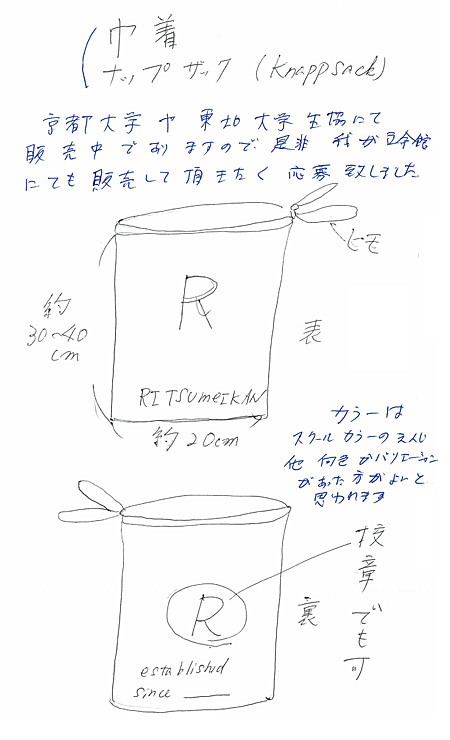 巾着
ナップザック (Knappsack)
京都大学や東北大学生協にて
販売中でありますので是非 我が立命館
にても販売して頂きたく応募致しました
ヒモ
R
約
30~40
cm
表
RITSUMEIKAN
約20cm
カラーは
スクールカラーのえんじ
他 何色かバリエーション
があった方がよいと
思われます
校章でも可
R
裏
established
since